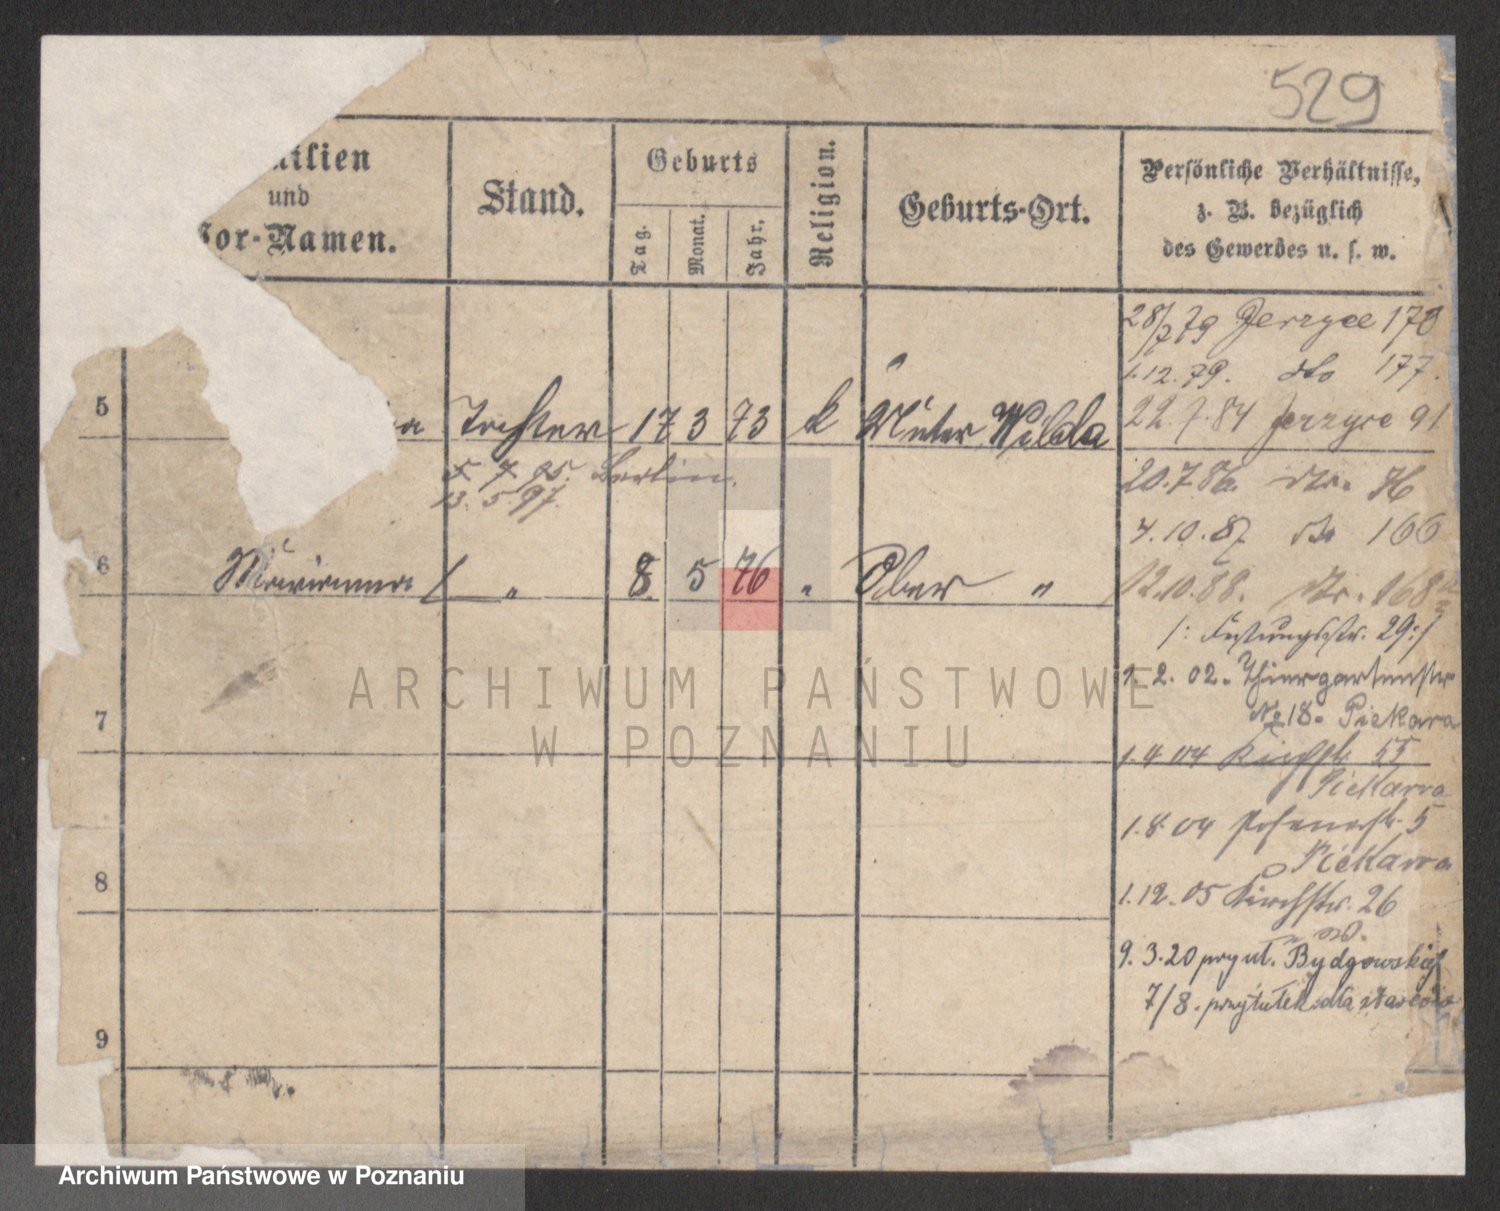 529
ilien
und
or-Namen.
Stand.
Geburts
Tag.
Monat.
Jahr.
Religion.
Geburts-Ort.
Persönliche Verhältnisse,
z. B. bezüglich
des Gewerbes u. s. w.
28/7 79 Jerzyce 178
1.12.79. dto 177.
22.7.84 Jerzyce 91
5 a Tochter 17 3 73 k Unter Wilda
5. 7. 95. Berlin.
13. 5. 97.
20.7.86. dto.
4.10.87 dto 166
6 Marianna " 8 5 76 " Ober "
12.10.88. 168
/: Festungsstr. 29 :/
1. 2. 02. Thiergartenstr
No 18. Piekara
7
1.4 04 Kirchstr. 55
Piekarra
1.8 04 Posenerstr. 5
Piekarra
8
1.12.05 Kirchstr. 26
9.3.20 przy ul. Bydgowskiej
7/8. przytułek dla starców
9
ARCHIWUM PAŃSTWOWE
W POZNANIU
Archiwum Państwowe w Poznaniu